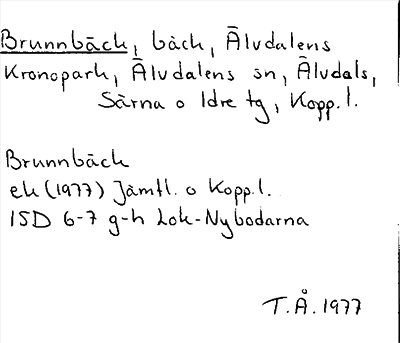 Brunnbäck, bäck, Älvdalens
Kronopark, Älvdalens sn, Älvdals,
Särna o Idre tg, Kopp.l.
Brunnbäck
ek (1977) Jämtl. o Kopp.l.
15D 6-7 g-h Lok-Nybodarna
T.Å. 1977